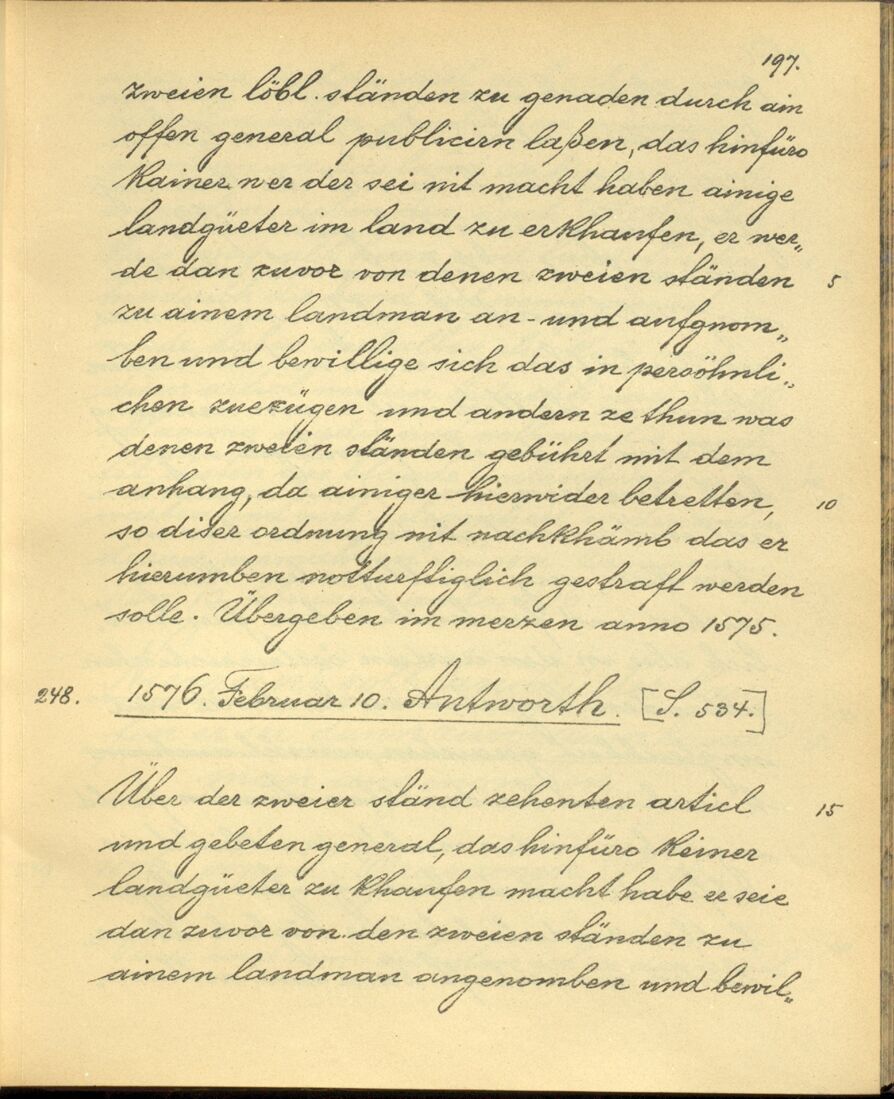 197.
zweien löbl. ständen zu genaden durch ain
offen general publicirn laßen, das hinfüro
kainer wer der sei nit macht haben ainige
landgüeter im land zu erkhaufen, er wer„
de dan zuvor von denen zweien ständen 5
zu ainem landman an- und aufgnom„
ben und bewillige sich das in persöhnli„
chen zuezügen und andern ze thun was
denen zweien ständen gebührt mit dem
anhang, da ainiger hierwider betretten, 10
so diser ordnung nit nachkhämb das er
hierumben notturftiglich gestraft werden
solle. Übergeben im merzen anno 1575.
248. 1576. Februar 10. Antworth. [S. 534.]
Über der zweier ständ zehenten articl 15
und gebeten general, das hinfüro keiner
landgüeter zu khaufen macht habe er seie
dan zuvor von den zweien ständen zu
ainem landman angenomben und bewil„